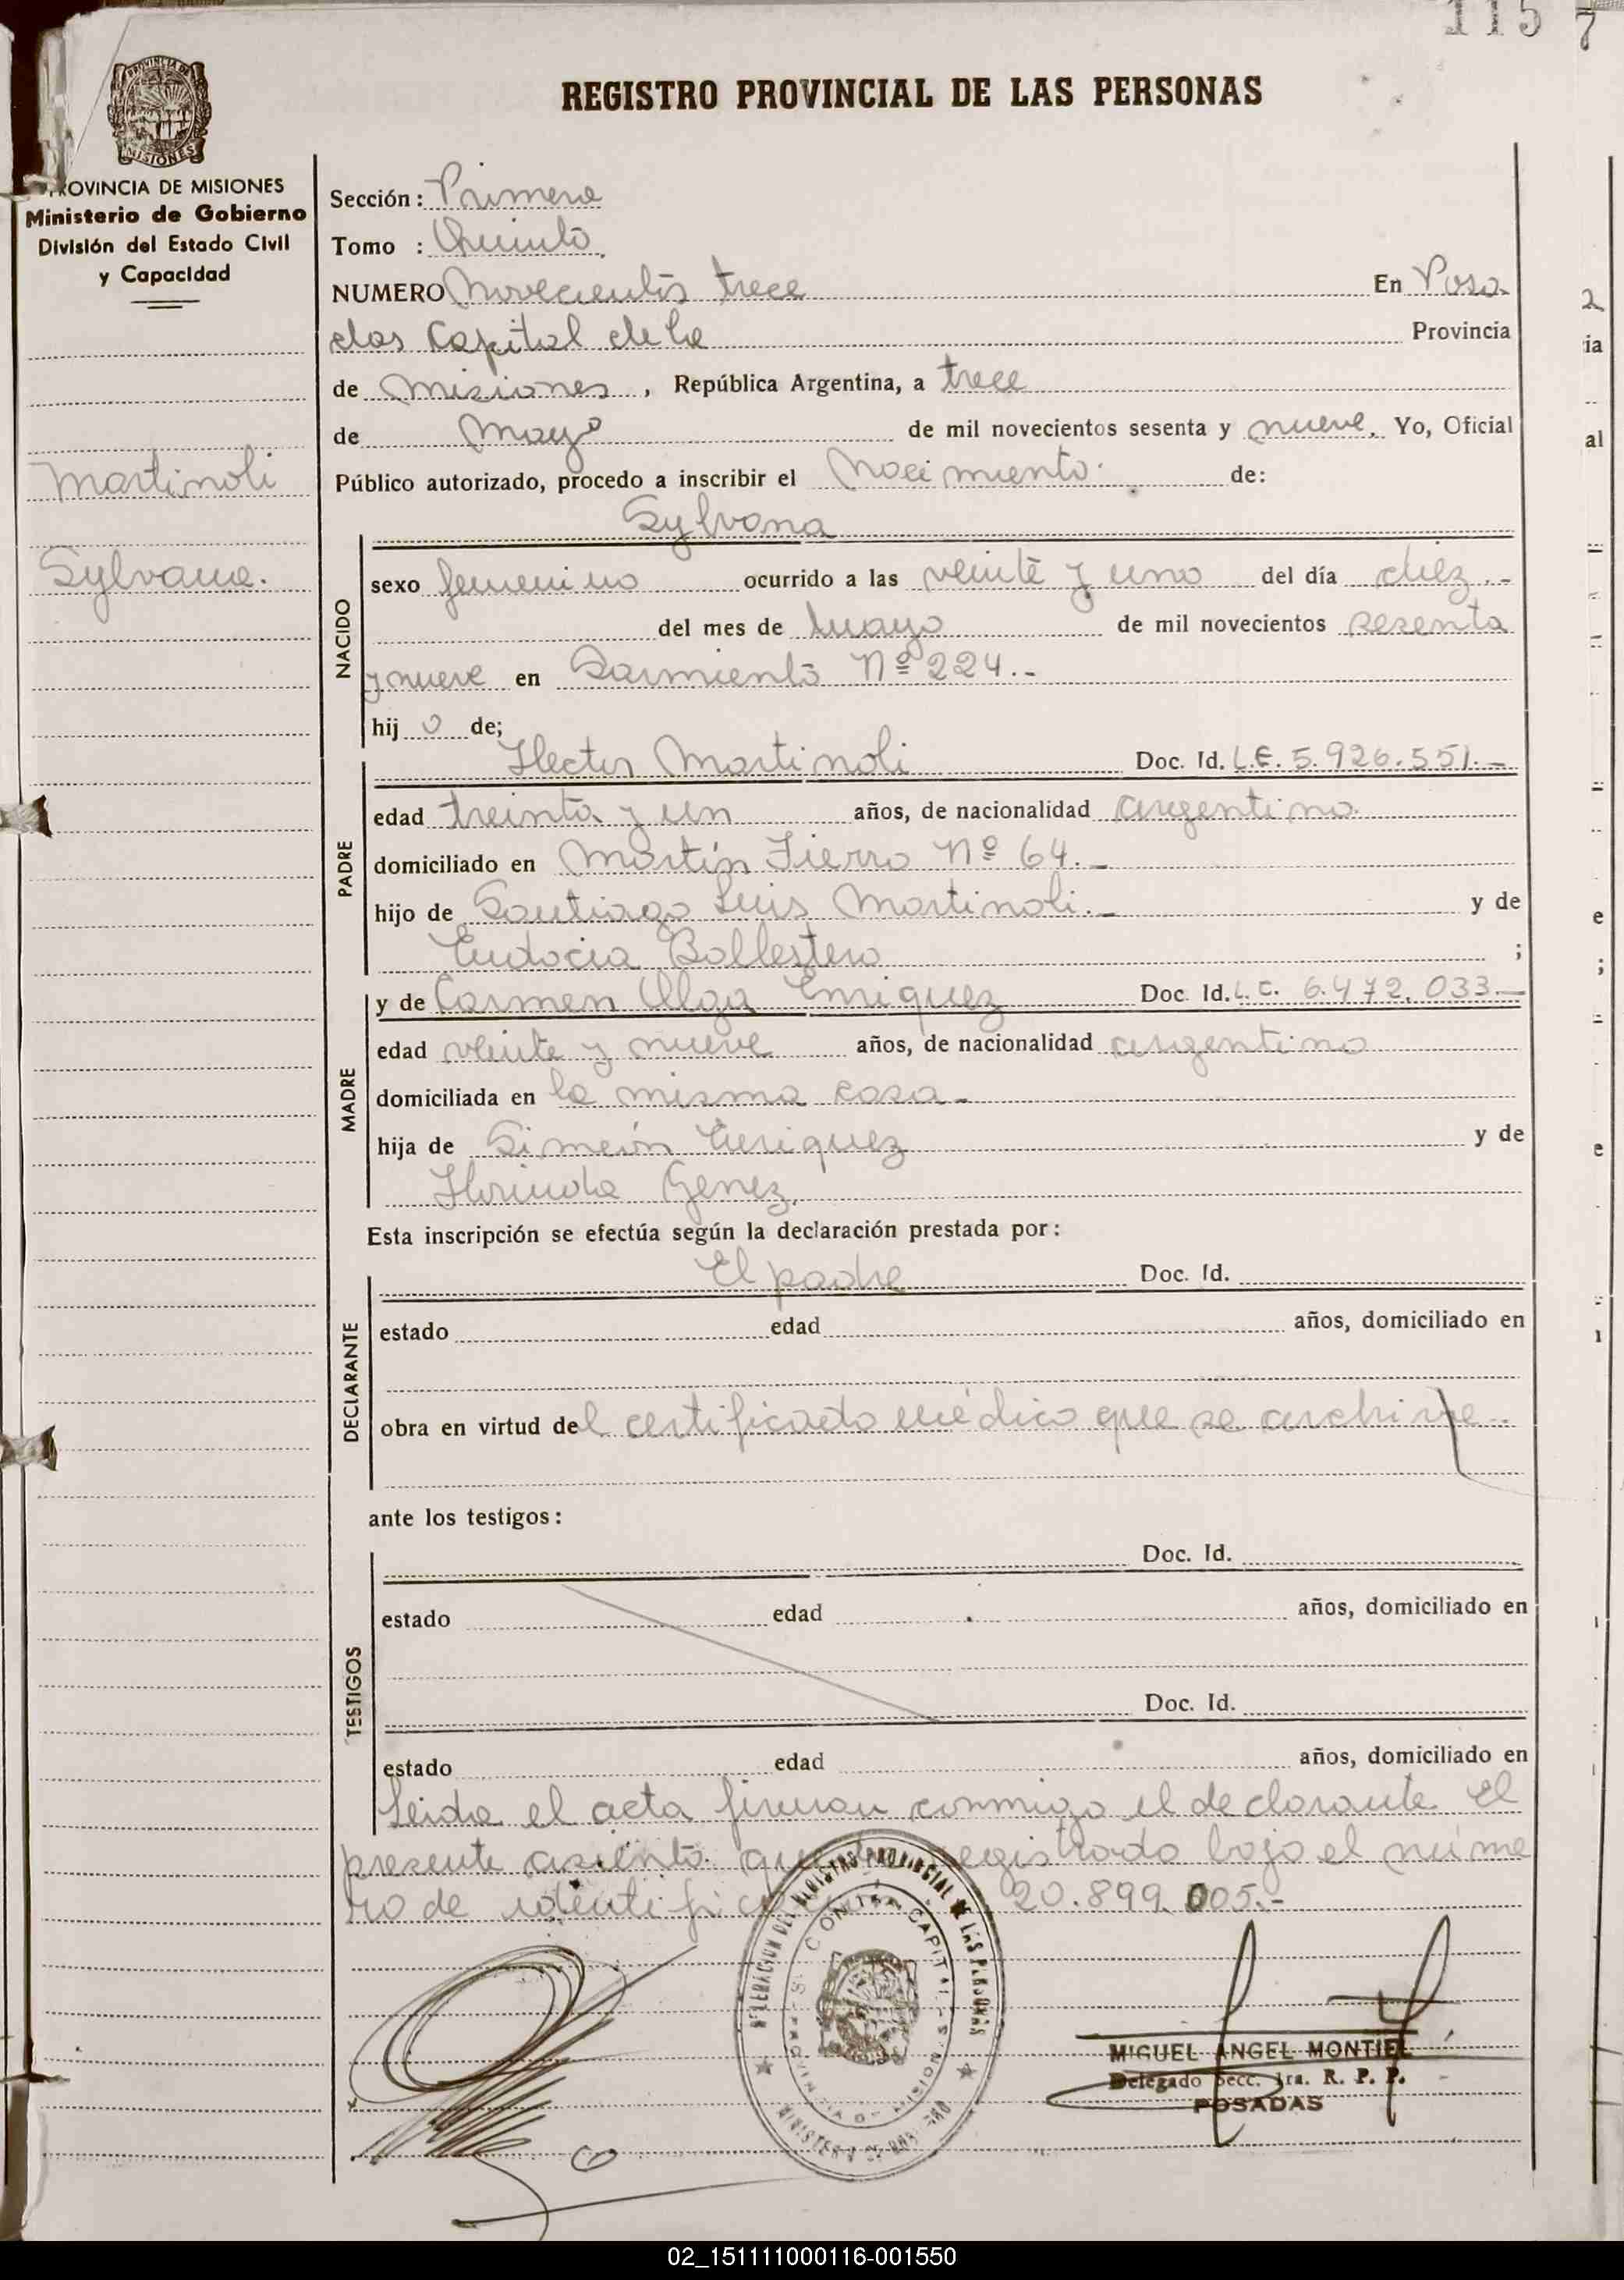 115 7
REGISTRO PROVINCIAL DE LAS PERSONAS
PROVINCIA DE
MISIONES
PROVINCIA DE MISIONES
Ministerio de Gobierno
División del Estado Civil
y Capacidad
Martinoli
Sylvana.
Sección: Primera
Tomo : Quinto
NUMERO Novecientos trece En Posa
das Capital de la Provincia
de Misiones, República Argentina, a trece
de Mayo de mil novecientos sesenta y nueve. Yo, Oficial
Público autorizado, procedo a inscribir el Nacimiento de:
Sylvana
NACIDO
sexo femenino ocurrido a las veinte y uno del día diez.-
del mes de Mayo de mil novecientos sesenta
y nueve en Sarmiento Nº 224.-
hij o de;
PADRE
Hector Martinoli Doc. Id. L.E. 5.926.551.-
edad treinta y un años, de nacionalidad argentino
domiciliado en Martín Fierro Nº 64.-
hijo de Santiago Luis Martinoli.- y de
Eudocia Ballestero ;
MADRE
y de Carmen Olga Enriquez Doc. Id. L.C. 6.472.033.-
edad veinte y nueve años, de nacionalidad argentina
domiciliada en la misma casa.-
hija de Simeón Enriquez y de
Florinda Genez.
Esta inscripción se efectúa según la declaración prestada por:
DECLARANTE
El padre Doc. Id.
estado edad años, domiciliado en
obra en virtud del certificado médico que se archiva.
ante los testigos:
TESTIGOS
Doc. Id.
estado edad años, domiciliado en
Doc. Id.
estado edad años, domiciliado en
Leida el acta firman conmigo el declarante. El
presente asiento registrado bajo el núme
ro de 20.899.005.-
DELEGACION DEL REGISTRO PROVINCIAL DE LAS PERSONAS
MIGUEL ANGEL MONTIEL
Delegado Secc. 1ra. R. P. P.
POSADAS
2
ia
al
e
;
e
02_151111000116-001550